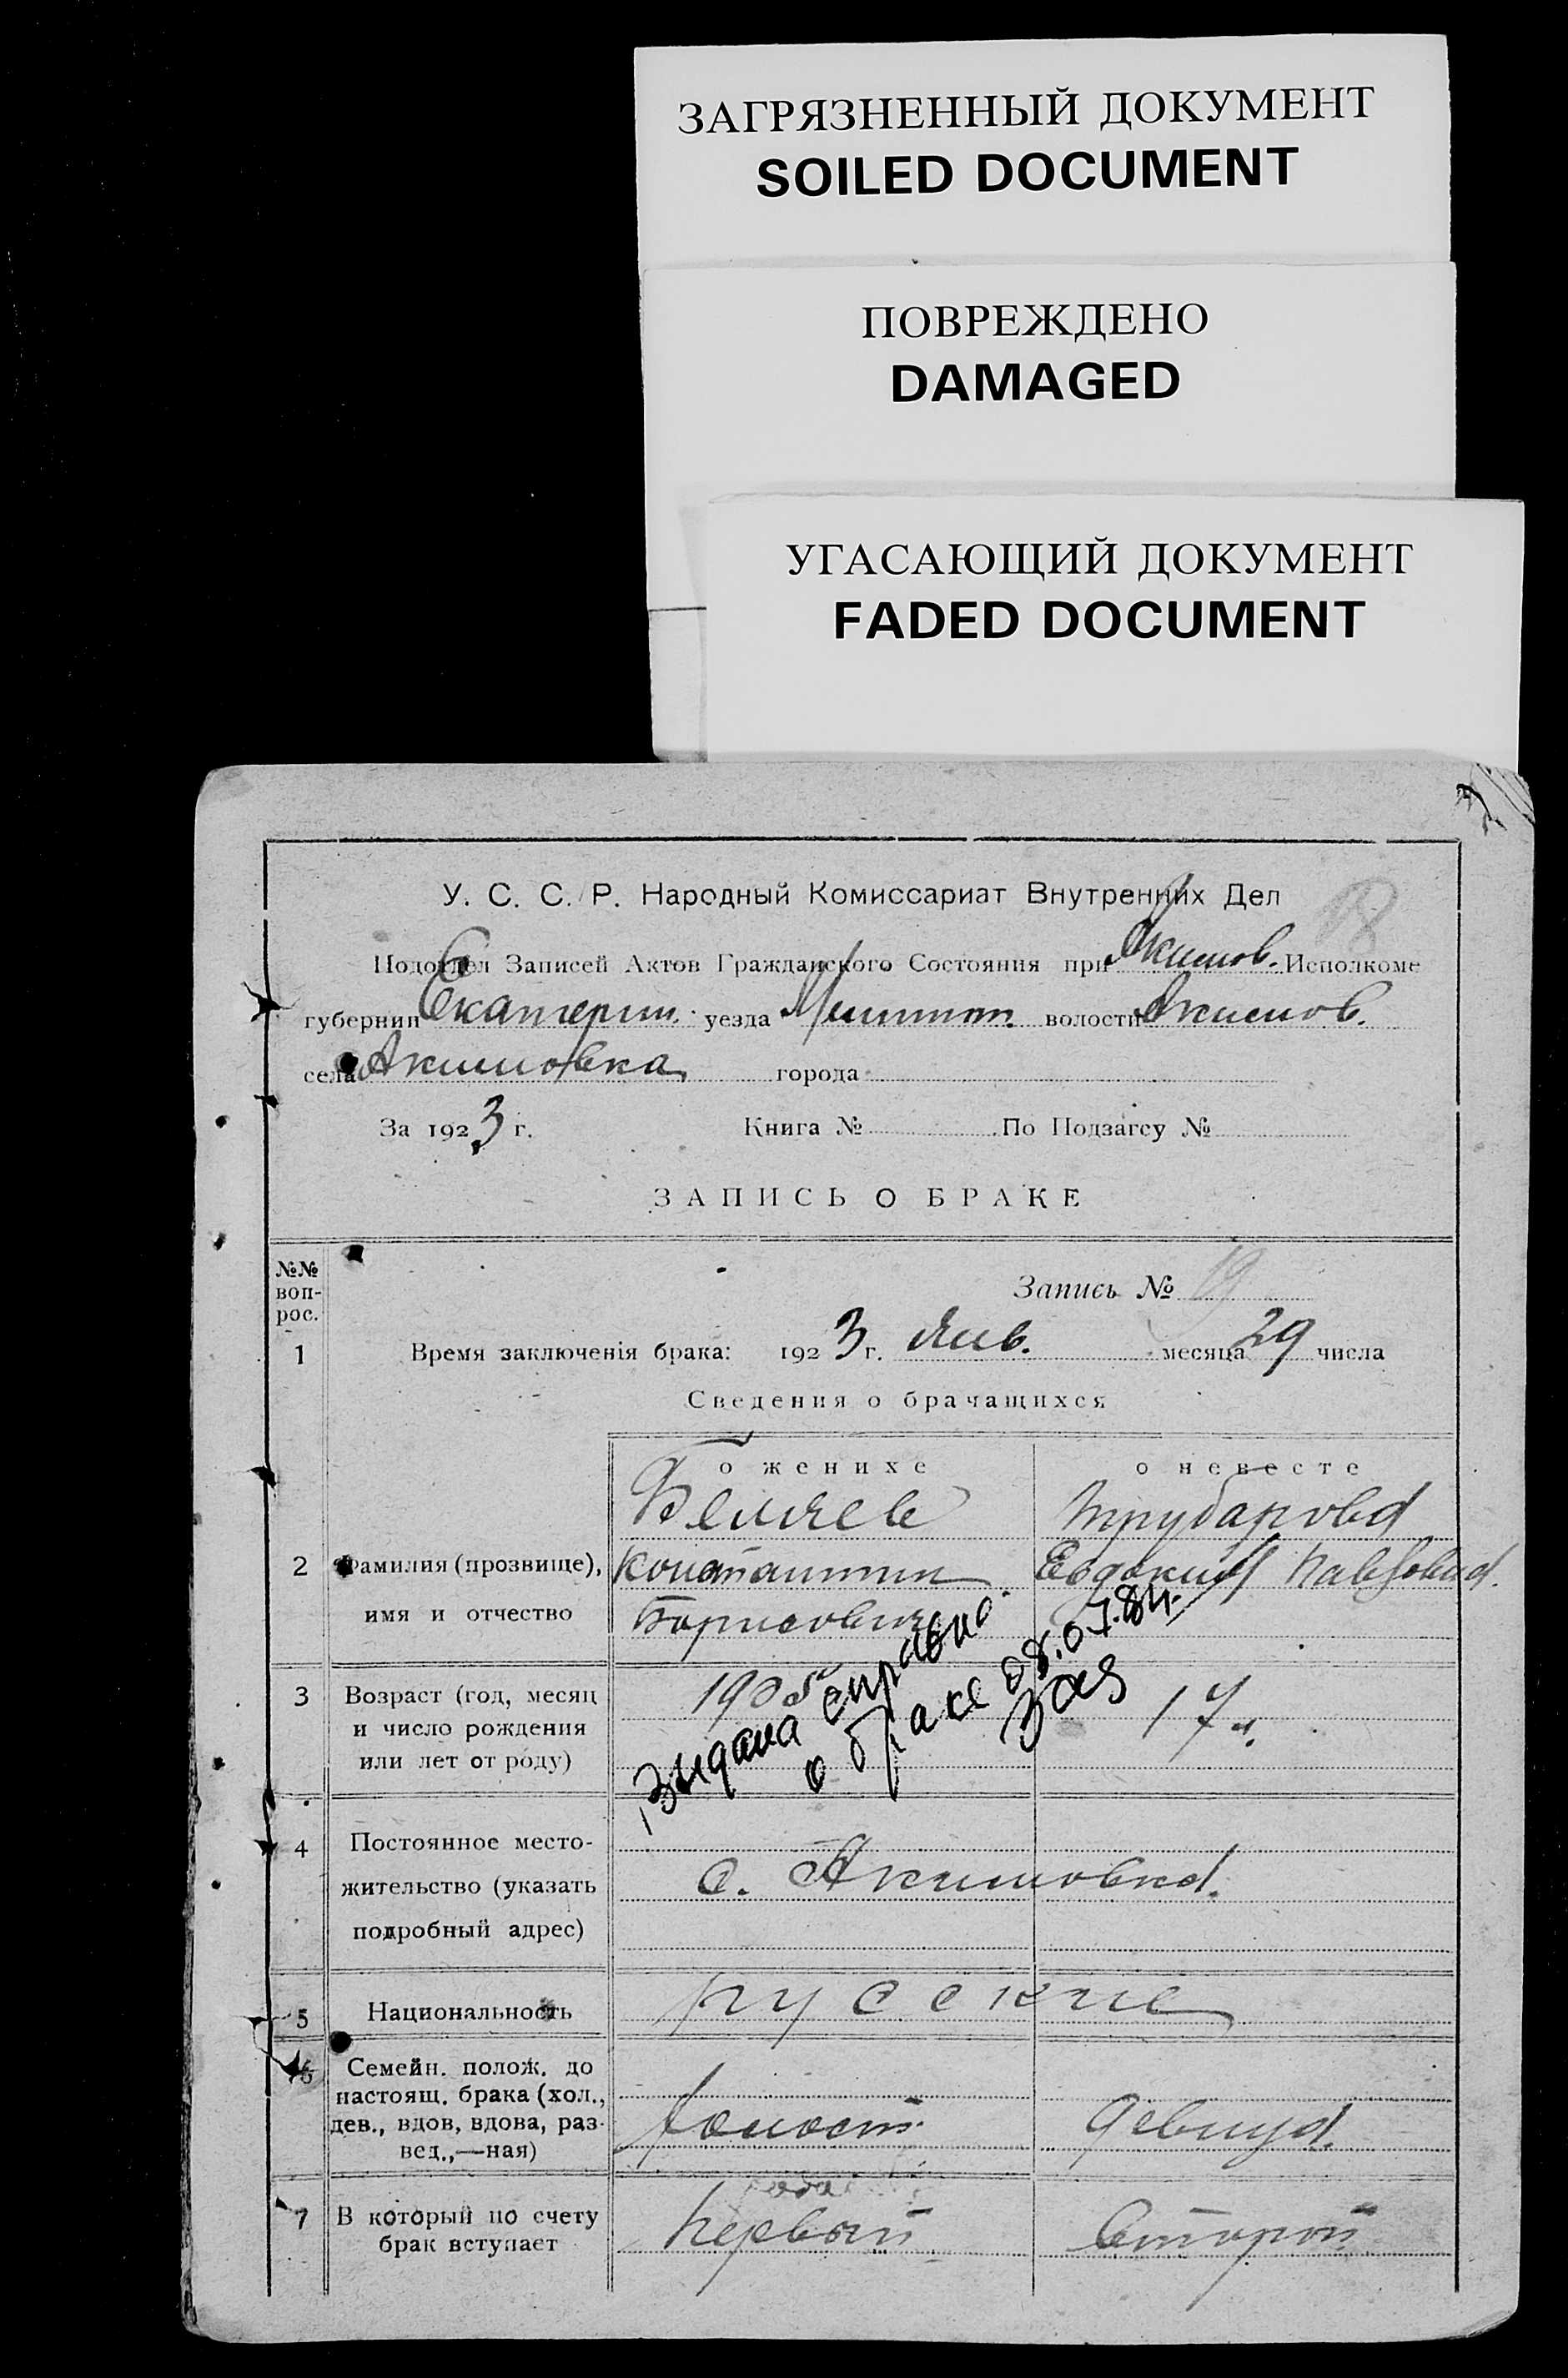 ЗАГРЯЗНЕННЫЙ ДОКУМЕНТ
SOILED DOCUMENT
ПОВРЕЖДЕНО
DAMAGED
УГАСАЮЩИЙ ДОКУМЕНТ
FADED DOCUMENT
18
У. С. С. Р. Народный Комиссариат Внутренних Дел
Подотдел Записей Актов Гражданского Состояния при Акимов. Исполкоме
губернии Екатерин. уезда Мелитоп. волости Акимов.
села Акимовка города
За 1923 г. Книга № По Подзагсу №
ЗАПИСЬ О БРАКЕ
№№ воп-рос.
Запись № 19
1 Время заключенія брака: 1923 г. Янв. месяца 29 числа
Сведения о брачащихся
о женихе о невесте
Беляев Трубарова
2 Фамилия (прозвище), Константин Евдокия Павловна.
имя и отчество Борисович
3 Возраст (год, месяц 1905 17 л.
и число рождения
или лет от роду)
Выдана справка
о браке 08.07.84.
4 Постоянное место-
жительство (указать с. Акимовка.
подробный адрес)
5 Национальность русские
6 Семейн. полож. до
настоящ. брака (хол.,
дев., вдов, вдова, раз- холост. девица.
вед.,—ная)
7 В который по счету первый второй
брак вступает